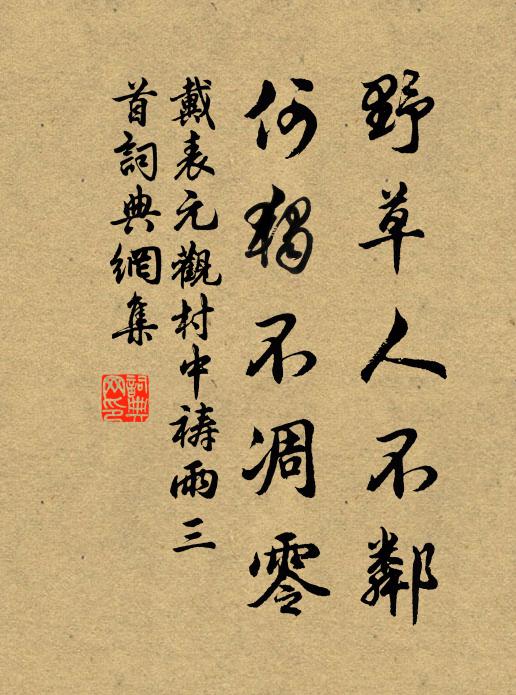 野草人不鄰
何獨不凋零
戴表元觀村中禱雨三
首詞典網集
詞典网印